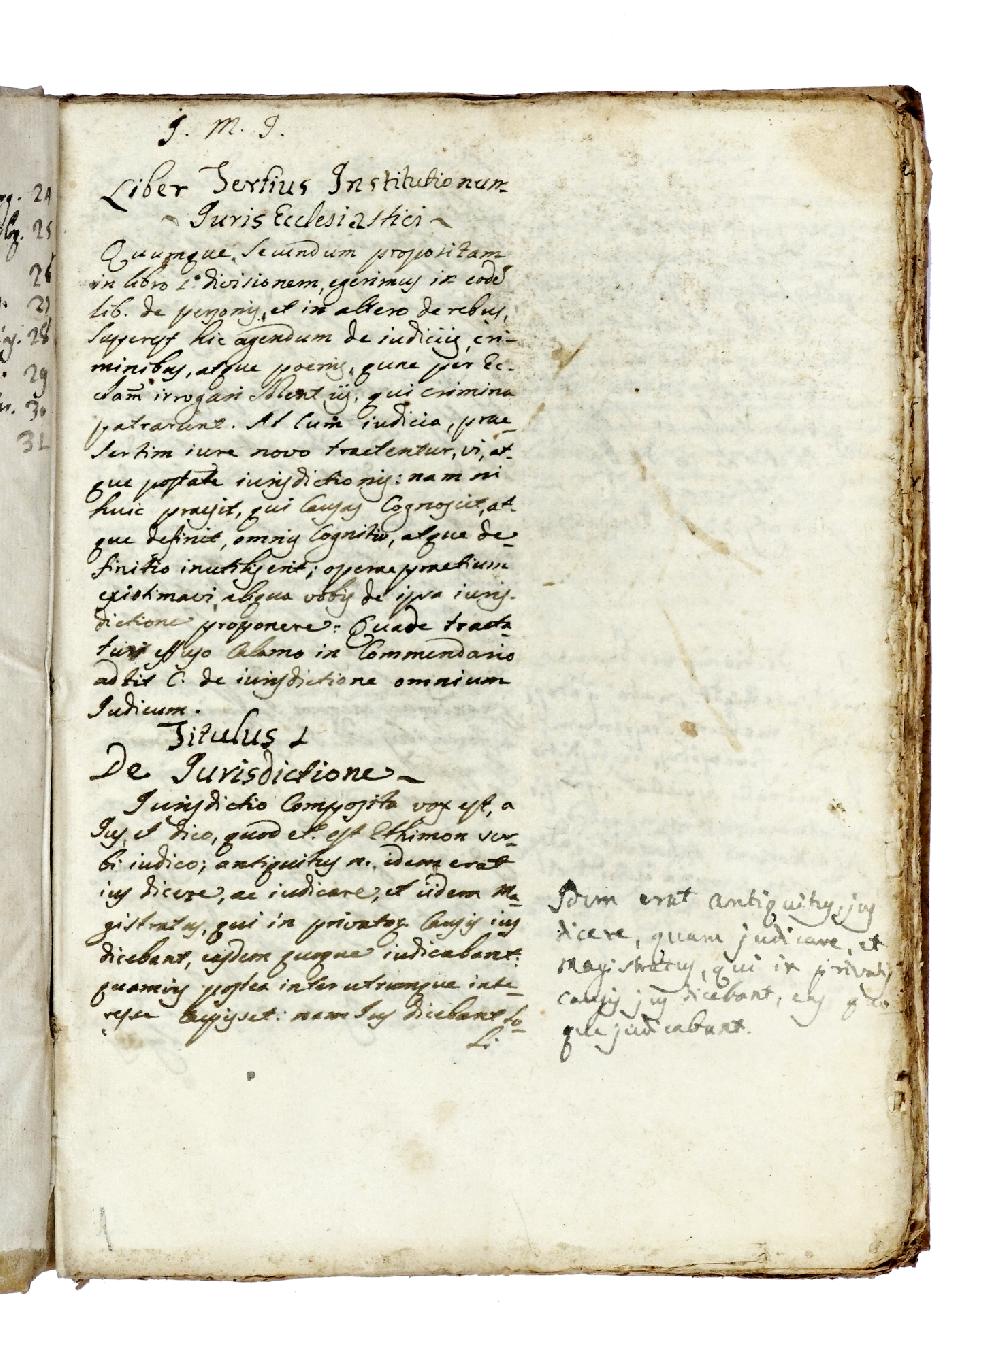 J. M. J.
Liber Tertius Institutionum
Iuris Ecclesiastici
Quumque secundum propositam
in libro 1º divisionem, egerimus in eodē
lib. de personis, et in altero de rebus,
superest hic agendum de iudiciis, cri-
minibus, atque poenis, quae per Ec-
clam̄ irrogari solent iis, qui crimina
patrarunt. At cum iudicia, prae-
sertim iure novo tractentur, vi, at-
que potestate iurisdictionis: nam ni
huic praesit, qui causas cognoscit, at-
que definit, omnis cognitio, atque de-
finitio inutilis erit; operae praetium
existimavi, aliqua vobis de ipsa iuris-
dictione proponere. Qua de tracta-
turi calamo in Commendario
ad tit C. de iurisdictione omnium
Iudicum.
Titulus 1
De Jurisdictione
Jurisdictio composita vox est, a
Ius, et dico, quod et. est Ethimon ver-
bi iudico; antiquitus n. idem erat
ius dicere, ac iudicare, et iidem Ma-
gistratus, qui in privator. causis ius
dicebant, eisdem quoque iudicabant:
quamvis postea inter utrumque inte-
resse caepisset: nam Ius dicebant so-
li.
Idem erat antiquitus jus
dicere, quam judicare, et
Magistratus, qui in privatis
causis jus dicebant, eas quo
que judicabant.
24
25
26
27
28
29
30
31